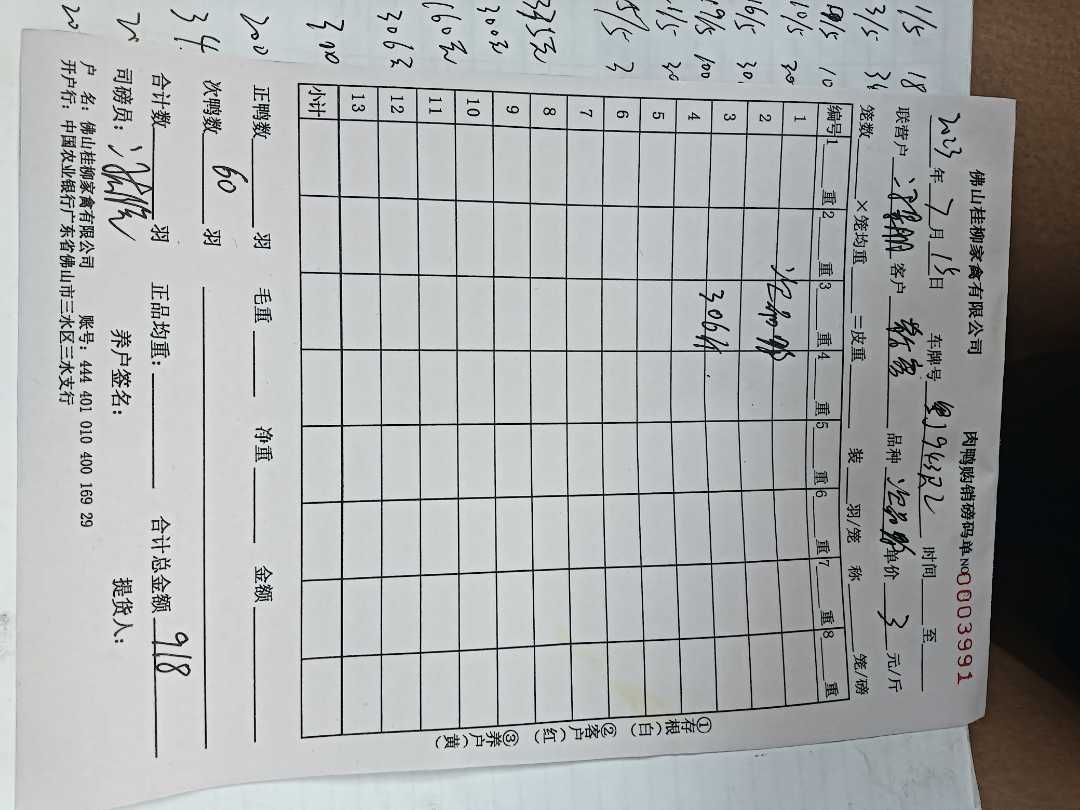 佛山桂柳家禽有限公司 肉鸭购销磅码单 NO 0003991
2023年7月15日 车牌号 时间 至
联营户 客户 品种 单价 3 元/斤
笼数 ×笼均重 三皮重 装 羽/笼 称 笼/磅
编号 1 重 2 重 3 重 4 重 5 重 6 重 7 重 8 重
1
2
3
4 306斤
5
6
7
8
9
10
11
12
13
小计
①存根(白) ②客户(红) ③养户(黄)
正鸭数 羽 毛重 净重 金额
次鸭数 60 羽
合计数 羽 正品均重: 合计总金额 918
司磅员: 养户签名: 提货人:
户 名: 佛山桂柳家禽有限公司 账号: 444 401 010 400 169 29
开户行: 中国农业银行广东省佛山市三水区三水支行
1/5 18
3/5 34
10/5 20
16/5 30
19/5 100
335元
300元
160元
3063
300
200
34
20